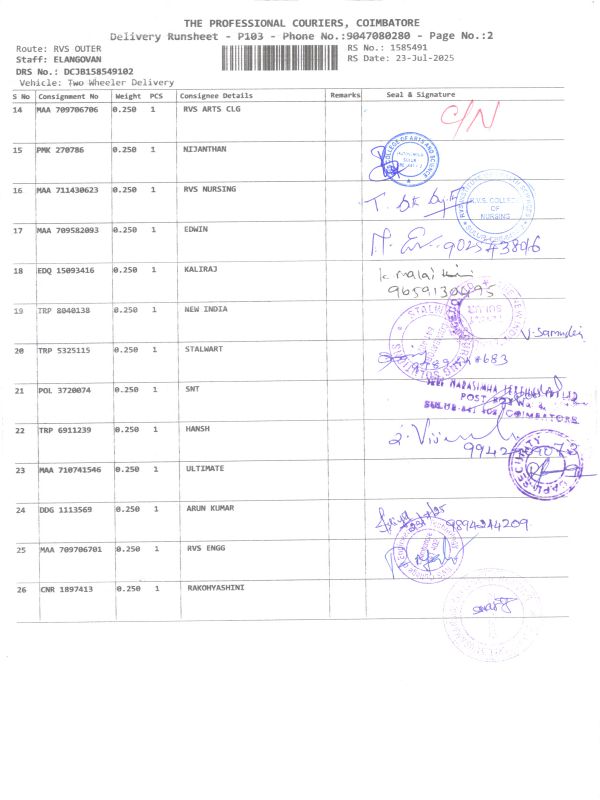 THE PROFESSIONAL COURIERS, COIMBATORE
Delivery Runsheet - P103 - Phone No.:9047080280 - Page No.:2
Route: RVS OUTER RS No.: 1585491
Staff: ELANGOVAN RS Date: 23-Jul-2025
DRS No.: DCJB158549102
Vehicle: Two Wheeler Delivery
S No Consignment No Weight PCS Consignee Details Remarks Seal & Signature
14 MAA 709706706 0.250 1 RVS ARTS CLG C/N
15 PMK 270786 0.250 1 NIJANTHAN COLLEGE OF ARTS AND SCIENCE
16 MAA 711430623 0.250 1 RVS NURSING R.V.S. COLLEGE OF NURSING
17 MAA 709582093 0.250 1 EDWIN
18 EDQ 15093416 0.250 1 KALIRAJ
19 TRP 8040138 0.250 1 NEW INDIA
20 TRP 5325115 0.250 1 STALWART STALW
21 POL 3720074 0.250 1 SNT SREE NARASIMHA
POST BOX
COIMBATORE
22 TRP 6911239 0.250 1 HANSH
23 MAA 710741546 0.250 1 ULTIMATE SECURITY
24 DDG 1113569 0.250 1 ARUN KUMAR 9894244209
25 MAA 709706701 0.250 1 RVS ENGG
26 CNR 1897413 0.250 1 RAKOHYASHINI